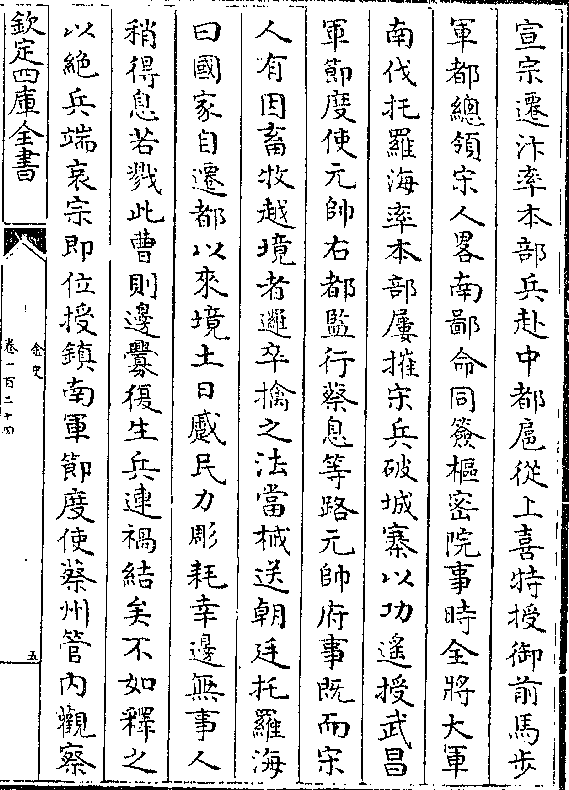 宣宗遷汴率本部兵赴中都扈從上喜特授御前馬步
軍都總領宋人畧南鄙命同簽樞密院事時全將大軍
南伐托羅海率本部屢摧宋兵破城寨以功遙授武昌
軍節度使元帥右都監行蔡息等路元帥府事既而宋
人有因畜牧越境者邏卒擒之法當械送朝廷托羅海
曰國家自遷都以來境土日蹙民力彫耗幸邊無事人
稍得息若戮此曹則邊釁復生兵連禍結矣不如釋之
以絶兵端哀宗即位授鎮南軍節度使蔡州管内觀察
欽定四庫全書
金史
卷一百二十四
五